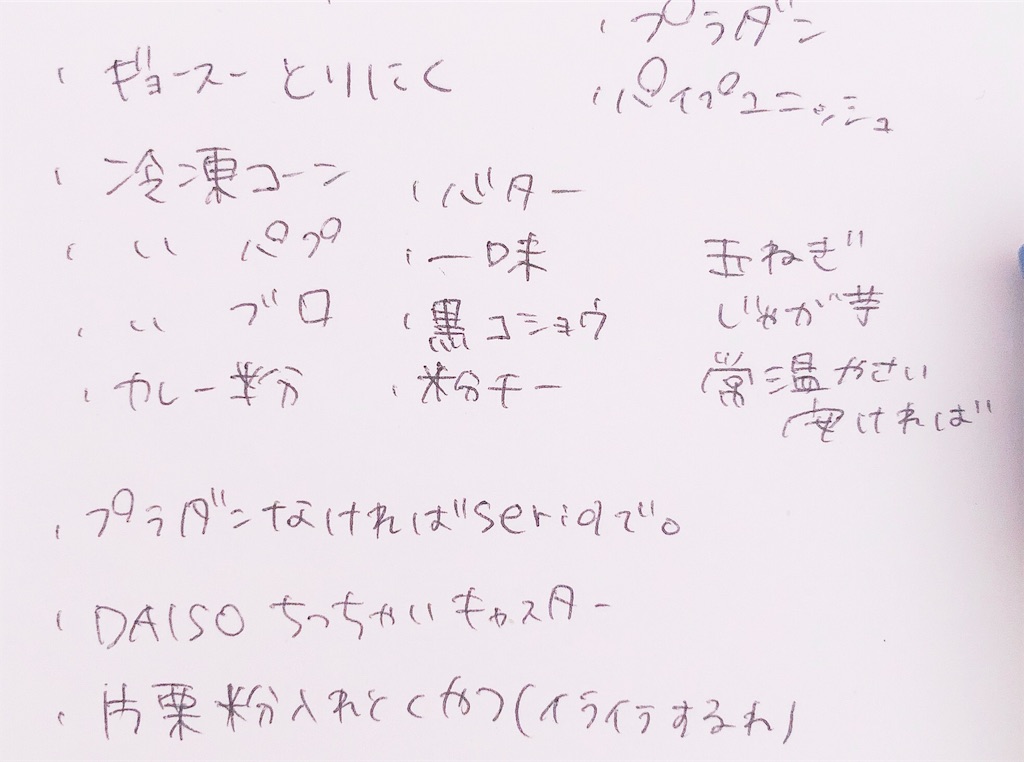 ・プラダン
・ギョースー とりにく
・パイプユニッシュ
・冷凍コーン
・〃 パプ
・〃 ブロ
・カレー粉
・バター
・一味
・黒コショウ
・粉チー
玉ねぎ
じゃが芋
常温やさい
安ければ
・プラダンなければseriaで。
・DAISO ちっちゃいキャスター
・片栗粉入れとくやつ(イライラするわ)